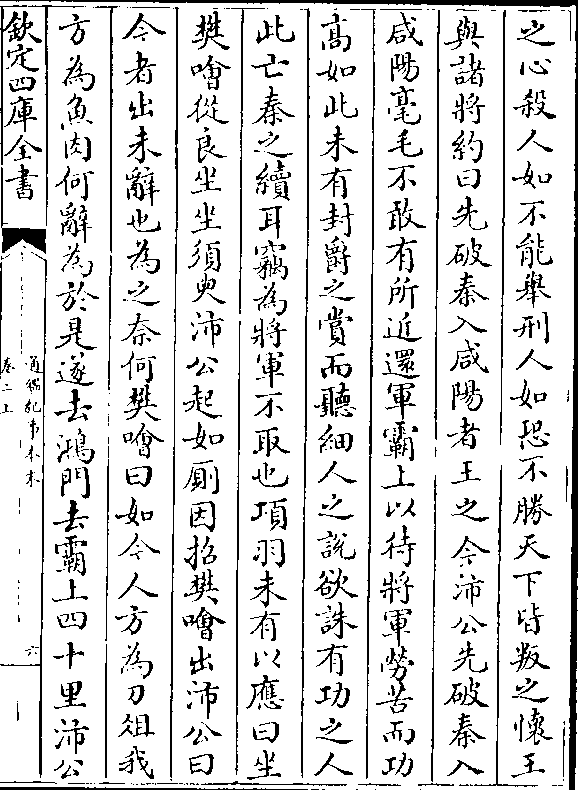 之心殺人如不能舉刑人如恐不勝天下皆叛之懷王
與諸將約曰先破秦入咸陽者王之今沛公先破秦入
咸陽毫毛不敢有所近還軍霸上以待將軍勞苦而功
高如此未有封爵之賞而聽細人之說欲誅有功之人
此亡秦之續耳竊為將軍不取也項羽未有以應曰坐
樊噲從良坐坐須臾沛公起如厠因招樊噲出沛公曰
今者出未辭也為之奈何樊噲曰如今人方為刀俎我
方為魚肉何辭為於是遂去鴻門去霸上四十里沛公
欽定四庫全書
通鑑紀事本末
卷二上
六